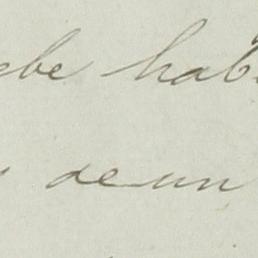 ebe hab
de un